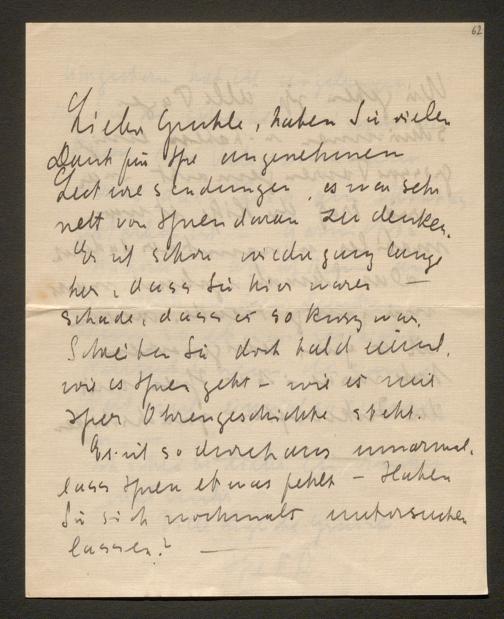 62
Lieber Gruhle, haben Sie vielen
Dank für Ihre angenehmen
Lecturesendungen, es war sehr
nett von Ihnen daran zu denken.
Es ist schon wieder ganz lange
her, dass Sie hier waren –
schade, dass es so kurz war.
Schreiben Sie doch bald einmal,
wie es Ihnen geht – wie es mit
Ihrer Ohrengeschichte steht.
Es ist so durchaus unnormal,
dass Ihnen etwas fehlt – Haben
Sie sich nochmals untersuchen
lassen? —